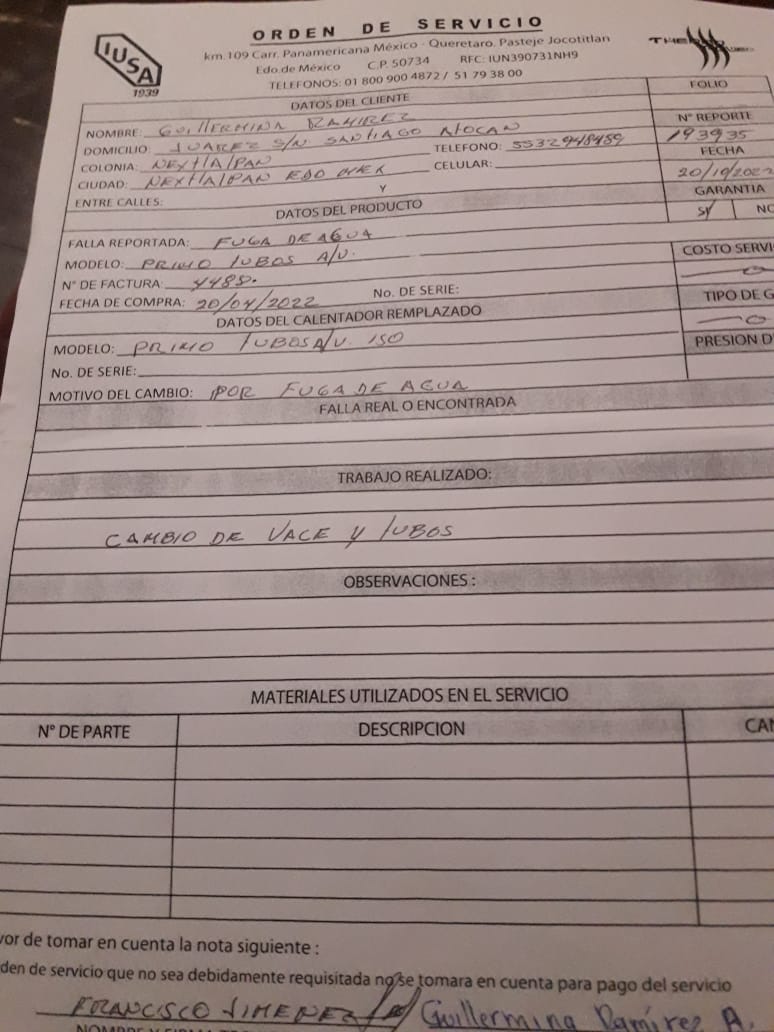 ORDEN DE SERVICIO
IUSA
1939
km.109 Carr. Panamericana México - Queretaro. Pasteje Jocotitlan
Edo.de México C.P. 50734 RFC: IUN390731NH9
TELEFONOS: 01 800 900 4872 / 51 79 38 00
DATOS DEL CLIENTE
FOLIO
NOMBRE: GUILLERMINA RAMIREZ
N° REPORTE
DOMICILIO: JUAREZ S/N SANTIAGO ATOCAN
193935
COLONIA: NEXTLALPAN TELEFONO: 5532948489
FECHA
CIUDAD: NEXTLALPAN EDO MEX CELULAR:
20/10/202
ENTRE CALLES: Y
GARANTIA
DATOS DEL PRODUCTO
SI NO
FALLA REPORTADA: FUGA DE AGUA
MODELO: PRIMO TUBOS A/V.
COSTO SERVI
N° DE FACTURA: 4485.
FECHA DE COMPRA: 20/04/2022 No. DE SERIE:
TIPO DE G
DATOS DEL CALENTADOR REMPLAZADO
MODELO: PRIMO TUBOS A/V. 150
PRESION D
No. DE SERIE:
MOTIVO DEL CAMBIO: POR FUGA DE AGUA
FALLA REAL O ENCONTRADA
TRABAJO REALIZADO:
CAMBIO DE VACE Y TUBOS
OBSERVACIONES :
MATERIALES UTILIZADOS EN EL SERVICIO
N° DE PARTE DESCRIPCION CAN
vor de tomar en cuenta la nota siguiente :
den de servicio que no sea debidamente requisitada no se tomara en cuenta para pago del servicio
FRANCISCO JIMENEZ Guillermina Ramírez A.